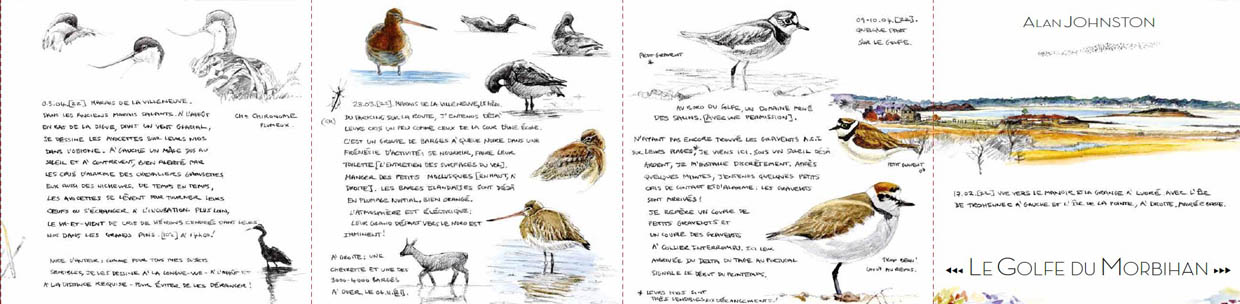 03.04.[22]. MARAIS DE LA VILLENEUVE.
DANS LES ANCIENS MARAIS SALANTS. A L'AFFÛT
EN BAS DE LA DIGUE, DONT UN VENT GLACIAL,
JE DESSINE LES AVOCETTES SUR LEURS NIDS
DANS L'OBIONE. A GAUCHE UN MÂLE DOS AU
SOLEIL ET A CONTREVENT, BIEN ALERTÉ PAR
LES CRIS D'ALARME DES CHEVALIERS GAMBETTES
EUX AUSSI DES NICHEURS. DE TEMPS EN TEMPS,
LES AVOCETTES SE LÈVENT POUR TOURNER LEURS
ŒUFS OU S'ÉCHANGER À L'INCUBATION. PLUS LOIN,
LE VA-ET-VIENT DE CRIS DE HÉRONS CENDRÉS DANS LEURS
NIDS DANS LES GRANDS PINS.
CHIRONOME
PLUMEUX
NOTE D'AUTEUR: COMME POUR TOUS MES SUJETS
SENSIBLES, JE LES DESSINE A LA LONGUE-VUE - A L'AFFÛT ET
A LA DISTANCE REQUISE - POUR ÉVITER DE LES DÉRANGER!
MARAIS DE LA VILLENEUVE,
DU PARKING SUR LA ROUTE, J'ENTENDS DÉJÀ
LEURS CRIS UN PEU COMME CEUX DE LA COUR D'UNE ÉCOLE.
C'EST UN GROUPE DE BARGES À QUEUE NOIRE DANS UNE
FRÉNÉSIE D'ACTIVITÉ: SE NOURRIR, FAIRE LEUR
TOILETTE [L'ENTRETIEN DES SURFACES DU VOL],
MANGER DES PETITS MOLLUSQUES [EN HAUT, A
DROITE]. LES BARGES ISLANDAISES SONT DÉJÀ
EN PLUMAGE NUPTIAL, BIEN ORANGÉ.
L'ATMOSPHÈRE EST ÉLECTRIQUE;
LEUR GRAND DÉPART VERS LE NORD EST
IMMINENT!
A DROITE; UNE
CHEVRETTE ET UNE DES
3000-4000 BARGES
PETIT GRAVELOT
09-10.04.[22].
QUELQUE PART
SUR LE GOLFE.
AU BORD DU GOLFE, UN DOMAINE PRIVÉ
[AVEC PERMISSION].
N'AYANT PAS ENCORE TROUVÉ LES GRAVELOTS
SUR LEURS PLAGES*, JE VIENS ICI, SOUS UN SOLEIL DÉJÀ
ARDENT, JE M'INSTALLE DISCRÈTEMENT, APRÈS
QUELQUES MINUTES, J'ENTENDS QUELQUES PETITS
CRIS DE CONTACT ET D'ALARME: LES GRAVELOTS
SONT ARRIVÉS!
JE REPÈRE UN COUPLE DE
PETITS GRAVELOTS ET
UN COUPLE DES GRAVELOTS
A COLLIER INTERROMPU. ICI LEUR
ARRIVÉE DU DELTA DU TAGE AU PORTUGAL
SIGNALE LE DÉBUT DU PRINTEMPS.
* LEURS NIDS SONT
TRÈS SENSIBLES AU DÉRANGEMENT!
PETIT GRAVELOT
ALAN JOHNSTON
VUE VERS LE MANOIR ET LA GRANGE A LUDRÉ AVEC L'ÎLE
DE TASCON A GAUCHE ET L'ÎLE DE LA POINTE, A DROITE, MARÉE BASSE.
LE GOLFE DU MORBIHAN